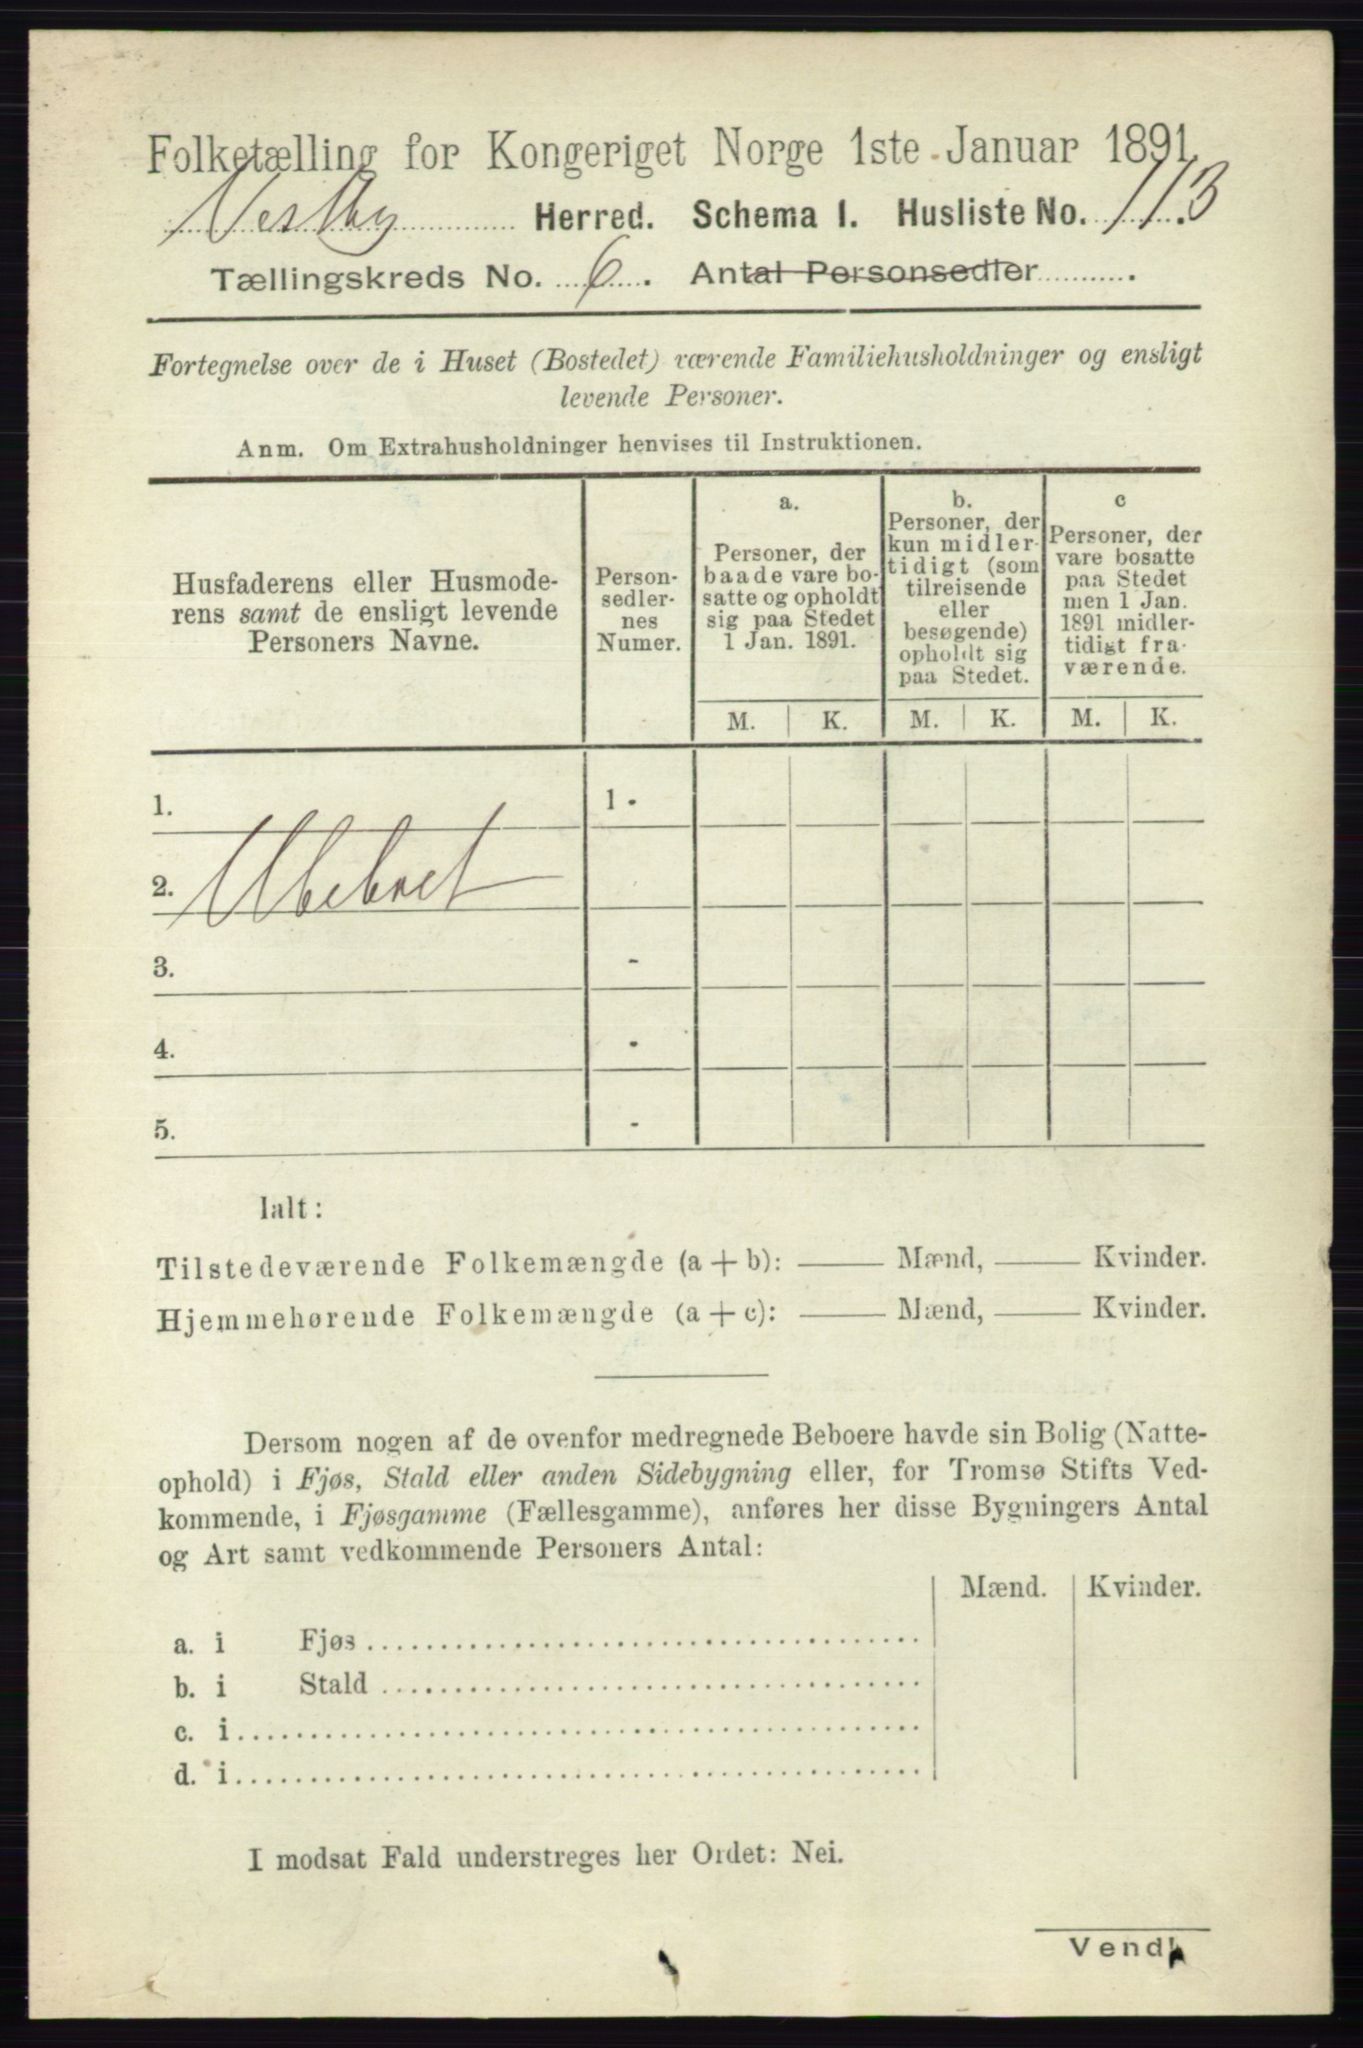 Folketælling for Kongeriget Norge 1ste Januar 1891.
Vestby Herred. Schema 1. Husliste No. 113
Tællingskreds No. 6. Antal Personsedler .
Fortegnelse over de i Huset (Bostedet) værende Familiehusholdninger og ensligt
levende Personer.
Anm. Om Extrahusholdninger henvises til Instruktionen.
Husfaderens eller Husmode-
rens samt de ensligt levende
Personers Navne.
Person-
sedler-
nes
Numer.
a.
Personer, der
baade vare bo-
satte og opholdt
sig paa Stedet
1 Jan. 1891.
b.
Personer, der
kun midler-
tidigt (som
tilreisende
eller
besøgende)
opholdt sig
paa Stedet.
c
Personer, der
vare bosatte
paa Stedet
men 1 Jan.
1891 midler-
tidigt fra-
værende.
M. K. M. K. M. K.
1. 1 -
2. Ubeboet
3. -
4. -
5. -
Ialt:
Tilstedeværende Folkemængde (a + b): —— Mænd, —— Kvinder.
Hjemmehørende Folkemængde (a + c): —— Mænd, —— Kvinder.
Dersom nogen af de ovenfor medregnede Beboere havde sin Bolig (Natte-
ophold) i Fjøs, Stald eller anden Sidebygning eller, for Tromsø Stifts Ved-
kommende, i Fjøsgamme (Fællesgamme), anføres her disse Bygningers Antal
og Art samt vedkommende Personers Antal:
Mænd. Kvinder.
a. i Fjøs
b. i Stald
c. i
d. i
I modsat Fald understreges her Ordet: Nei.
Vend!